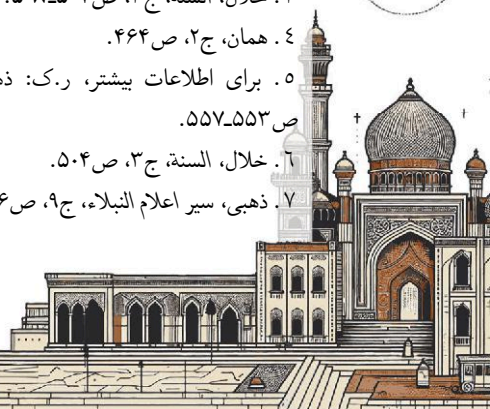 خلال، السنة، ج
٤. همان، ج۲، ص۴۶۴.
٥. برای اطلاعات بیشتر، ر.ک:
ص۵۵۳ـ۵۵۷.
٦. خلال، السنة، ج۳، ص۵۰۴.
۷. ذهبی، سیر اعلام النبلاء، ج۹، ص